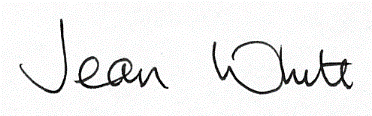 Jean White